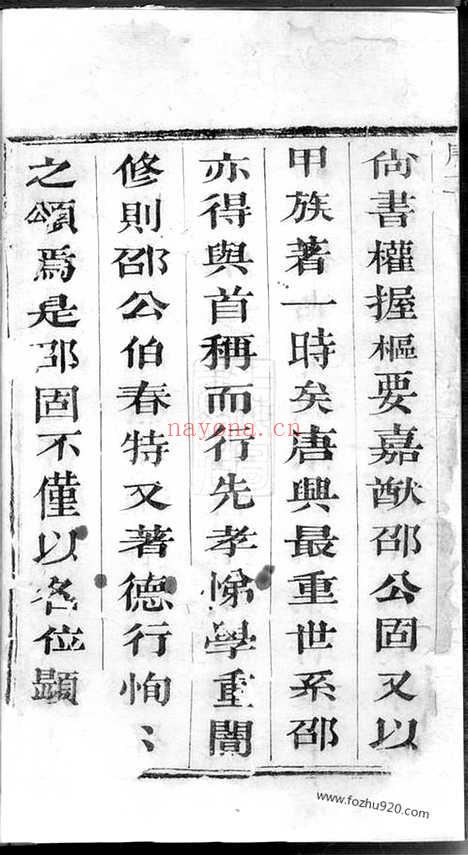 尙書權握樞要嘉猷邵公固又以
甲族著一時矣唐興最重世系邵
亦得與首稱而行先孝悌學重闇
修則邵公伯春特又著德行恂〻
之頌爲是邵固不僅以名位顯
nayona.cn
www.fozhu920.com